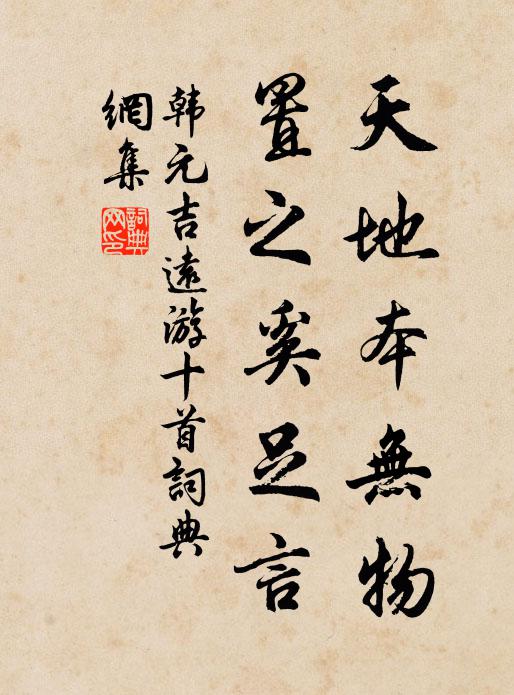 天地本無物
置之奚足言
韩元吉遠游十首詞典
網集
詞典网印